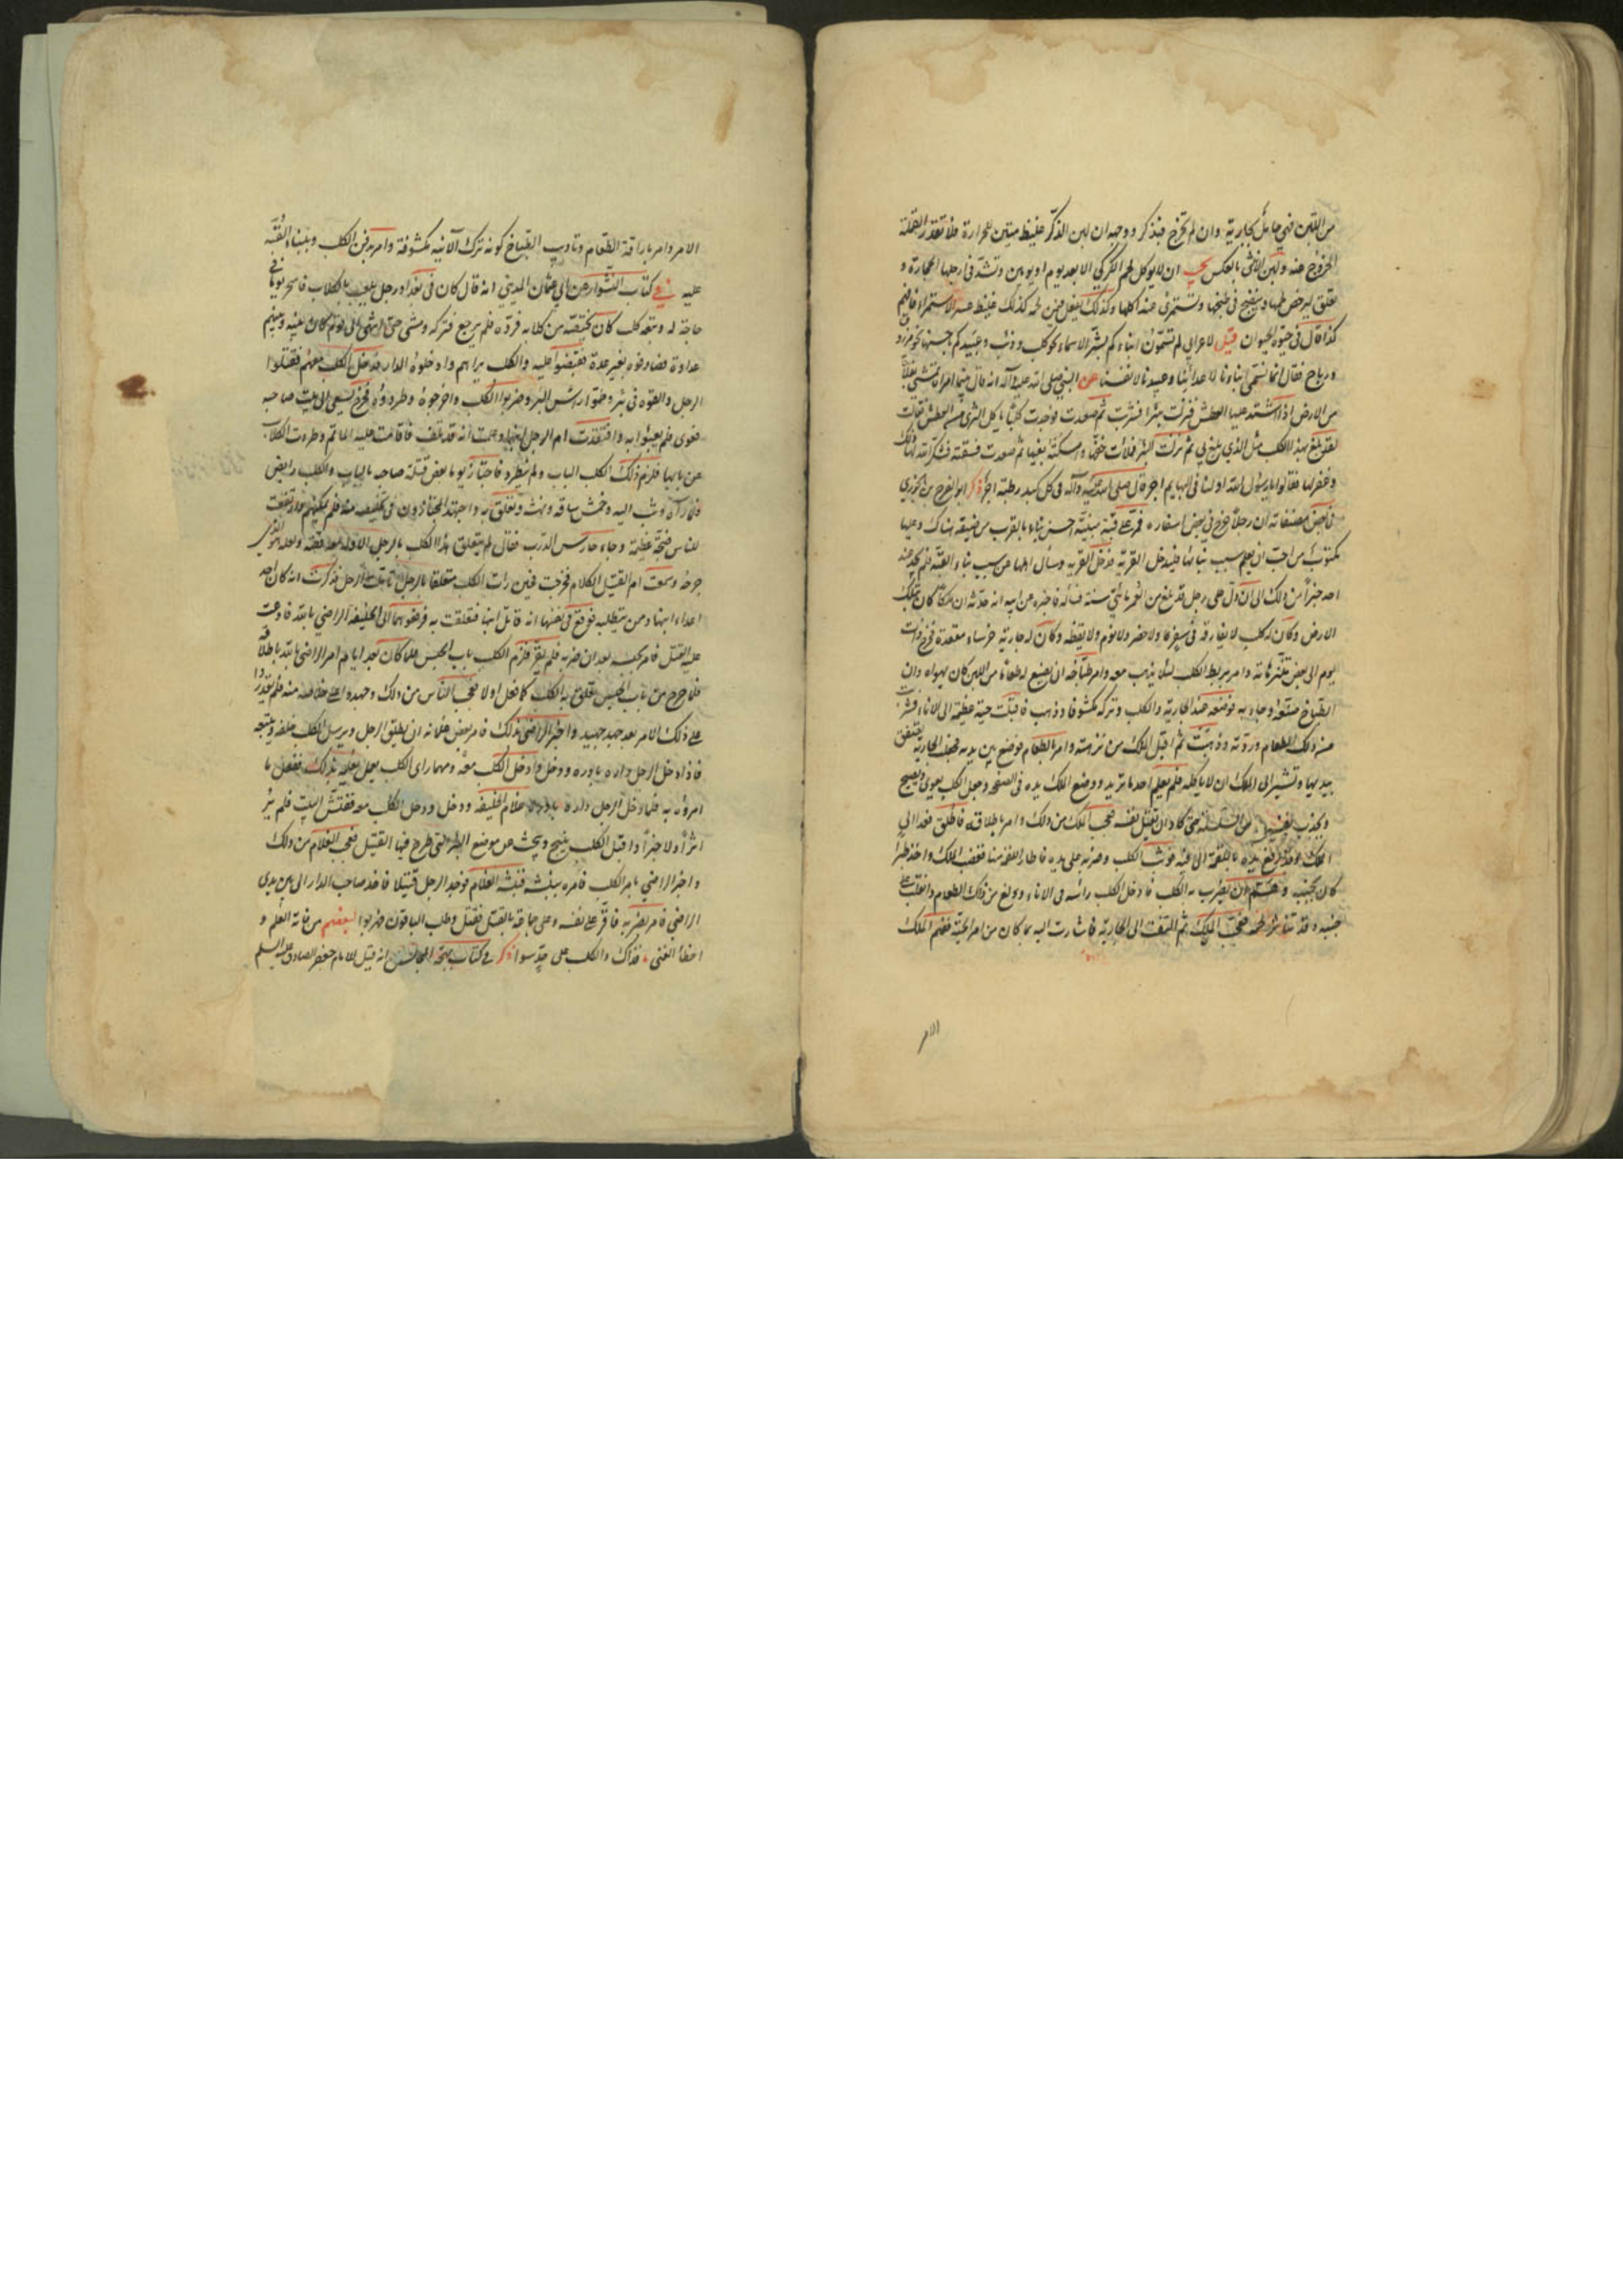 من اللبن فهي حامل بجارية وان لم تخرج فبذكر ووجه ان لبن الذكر غليظ متين للحرارة فلا تقدر القملة
الخروج عنه ولبن الانثى بالعكس يجب ان لا يوكل لحم الكركي الا بعد يوم او يومين وتشد في ارجلها الحجارة و
تعلق ليرخص لحمها وينضج في طبخها وتستمرئ عند اكلها وكذلك يفعل فيمن لحمه كذلك غليظ عسر الاستمراء فافهم
كذا قال في حيوة الحيوان قيل لاعرابي لم تسمون ابناءكم بشر الاسماء نحو كلب وذئب وعبيدكم باحسنها نحو مرزوق
ورباح فقال انما نسمي ابناءنا لاعدائنا وعبيدنا لانفسنا عن النبي صلى الله عليه وآله انه قال بينما امراة تمشي بفلاة
من الارض اذ اشتد عليها العطش فنزلت بئرا فشربت ثم صعدت فوجدت كلبا ياكل الثرى من العطش فقالت
لقد بلغ بهذا الكلب مثل الذي بلغ بي ثم نزلت البئر فملات خفها وامسكته بفيها ثم صعدت فسقته فشكر الله لها ذلك
وغفر لها فقالوا يا رسول الله اولنا في البهايم اجر قال صلى الله عليه وآله في كل كبد رطبة اجر ذكر ابو الفرج بن الجوزي
في بعض مصنفاته ان رجلا خرج في بعض اسفاره فمر على قبة مبنية احسن بناء بالقرب من ضيقة هناك وعليها
مكتوب من احب ان يعلم سبب بنائها فليدخل القرية فدخل القرية وسأل اهلها عن سبب بناء القبة فلم يجد عند
احد خبرا من ذلك الى ان دل على رجل قد بلغ من العمر مائتي سنة فساله فاخبره عن ابيه انه حدثه ان ملكا كان بتلك
الارض وكان له كلب لا يفارقه في سفر ولا حضر ولا نوم ولا يقظة وكان له جارية خرساء مقعدة فخرج ذات
يوم الى بعض متنزهاته وامر بربط الكلب لئلا يذهب معه وامر طباخه ان يصنع له طعاما من اللبن كان يهواه وان
الطباخ صنعه وجاء به فوضعه عند الجارية والكلب وتركه مكشوفا وذهب فاقبلت حية عظيمة الى الاناء فشربت
من ذلك الطعام وردته وذهبت ثم اقبل الملك من نزهته وامر بالطعام فوضع بين يديه فجعلت الجارية تصفق
بيديها وتشير الى الملك ان لا ياكله فلم يعلم احد ما تريد ووضع الملك يده في الصحفة وجعل الكلب يعوي ويصيح
ويجذب نفسه من السلسلة حتى كاد ان يقتل نفسه فعجب الملك من ذلك وامر باطلاقه فاطلق فغدا الى
الملك وقد رفع يده باللقمة الى فيه فوثب الكلب وضربه على يده فاطار اللقمة منها فغضب الملك واخذ طبرا
كان بجنبه وهم ان يضرب به الكلب فادخل الكلب راسه في الاناء وولغ من ذلك الطعام وانقلب على
جنبه وقد تناثر لحمه فعجب الملك ثم التفت الى الجارية فاشارت اليه بما كان من امر الحية ففهم الملك
الامر
الامر وامر باراقة الطعام وتاديب الطباخ كونه ترك الآنية مكشوفة وامر بدفن الكلب وببناء القبة
عليه في كتاب النشوار عن ابي عثمان المديني انه قال كان في بغداد رجل يلعب بالكلاب فاسحر يوما في
حاجة له وتبعه كلب كان يختصه من كلابه فرده فلم يرجع فتركه ومشى حتى انتهى الى قوم كان بينه وبينهم
عداوة فصادفوه بغير عدة فقبضوا عليه والكلب يراهم وادخلوه الدار فدخل الكلب معهم فقتلوا
الرجل والقوه في بئر وطموا راس البئر وضربوا الكلب واخرجوه وطردوه فخرج يسعى الى بيت صاحبه
فعوى فلم يعبئوا به وافتقدت ام الرجل ابنها وعلمت انه قد تلف فاقامت عليه الماتم وطردت الكلاب
عن بابها فلزم ذلك الكلب الباب ولم ينطرد فاجتاز يوما بعض قتلة صاحبه بالباب والكلب رابض
فلما رآه وثب اليه وخمش ساقه ونهشه وتعلق به واجتهد المجتازون في تخليصه منه فلم يمكنهم وارتفعت
للناس ضجة عظيمة وجاء حارس الدرب فقال لم يتعلق هذا الكلب بالرجل الا وله معه قصة ولعله هو الذي
جرحه وسمعت ام القتيل الكلام فخرجت فحين رات الكلب متعلقا بالرجل تاملت الرجل فذكرت انه كان احد
اعداء ابنها وممن يتطلبه فوقع في نفسها انه قاتل ابنها فتعلقت به فرفعوهما الى الخليفة الراضي بالله فادعت
عليه القتل فامر بحبسه بعد ان ضربه فلم يقر فلزم الكلب باب الحبس فلما كان بعد ايام امر الراضي بالله باطلاقه
فلما خرج من باب الحبس تعلق به الكلب كما فعل اولا فعجب الناس من ذلك وجهدوا على خلاصه منه فلم يقدروا
على ذلك الا من بعد جهد جهيد واخبر الراضي بذلك فامر بعض غلمانه ان يطلق الرجل ويرسل الكلب خلفه ويتبعه
فاذا دخل الرجل داره بادره ودخل وادخل الكلب معه ومهما راى الكلب يعمل يعلمه بذلك ففعل ما
امره به فلما دخل الرجل داره بادره غلام الخليفة ودخل ودخل الكلب معه ففتش البيت فلم ير
اثرا ولا خبرا واقبل الكلب ينبح ويبحث عن موضع البئر التي طرح فيها القتيل فعجب الغلام من ذلك
واخبر الراضي بامر الكلب فامره بنبشه فنبشه الغلام فوجد الرجل قتيلا فاخذ صاحب الدار الى بين يدي
الراضي فامر بضربه فاقر على نفسه وعلى جماعة بالقتل فقتل وطلب الباقون فهربوا لبعضهم من فاته العلم و
اخطأ الغنى فذاك والكلب على حد سوا ذكر في كتاب بهجة المجالس انه قيل للامام جعفر الصادق عليه السلم